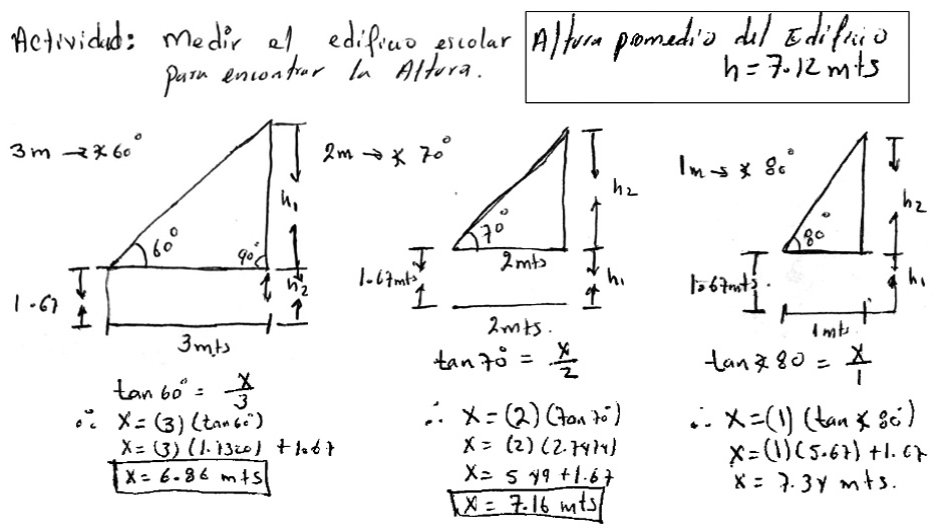 Actividad: Medir el edificio escolar
para encontrar la Altura.
Altura promedio del Edificio
h = 7.12 mts
3m → ∢ 60°
60°
90°
h1
h2
1.67
3mts
tan 60° = x/3
∴ X = (3) (tan 60°)
X = (3) (1.7320) + 1.67
X = 6.86 mts
2m → ∢ 70°
70°
2mts
h2
h1
1.67mts
2mts.
tan 70° = x/2
∴ X = (2) (tan 70°)
X = (2) (2.7474)
X = 5.49 + 1.67
X = 7.16 mts
1m → ∢ 80°
80°
h2
h1
1.67mts.
1mts.
tan ∢ 80 = x/1
∴ X = (1) (tan ∢ 80°)
X = (1) (5.67) + 1.67
X = 7.34 mts.